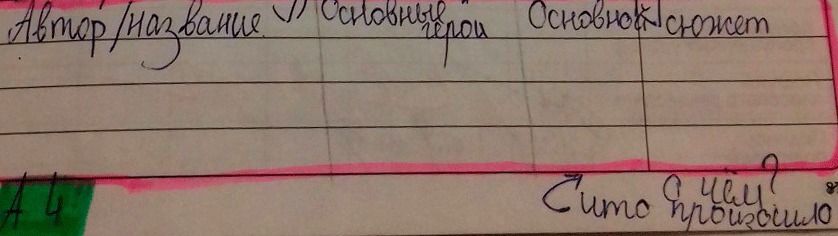 Автор/название Основные герои Основной сюжет
О чём?
А 4 что произошло